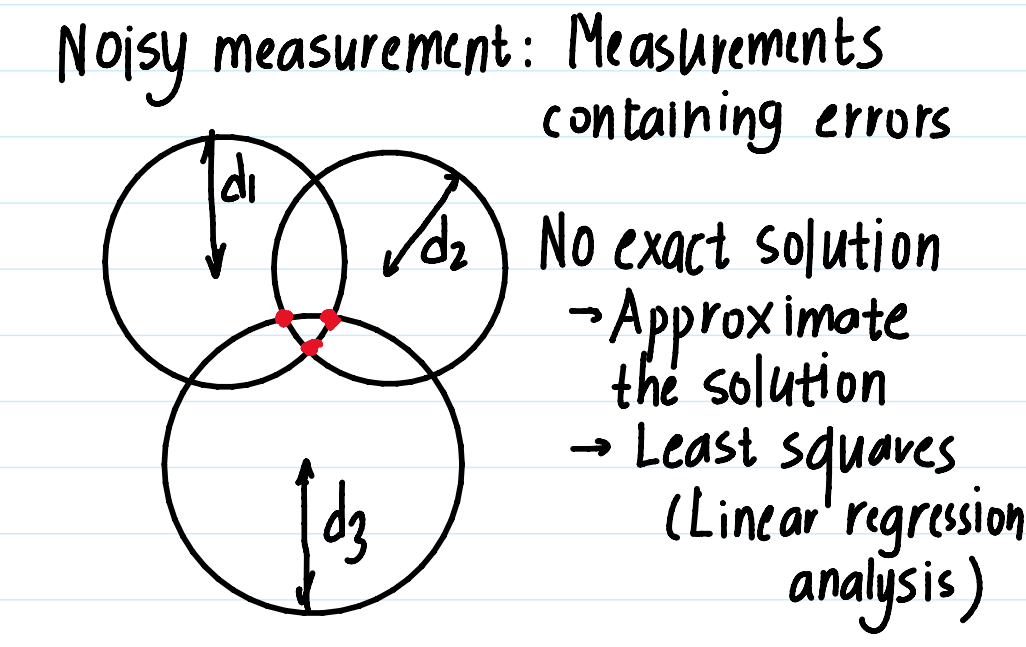 Noisy measurement: Measurements
containing errors
d1
d2
No exact solution
→ Approximate
the solution
→ Least squares
(Linear regression
analysis)
d3